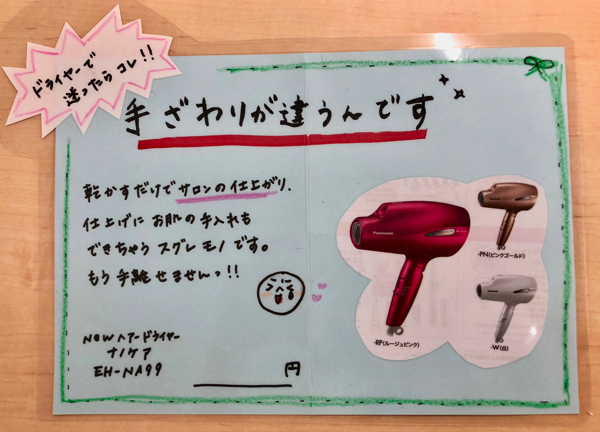 ドライヤーで
迷ったらコレ!!
手ざわりが違うんです
乾かすだけでサロンの仕上がり.
仕上げにお肌の手入れも
できちゃうスグレモノです。
もう手離せませんっ!!
NEWヘアードライヤー
ナノケア
EH-NA99
円
Panasonic
-RP(ルージュピンク)
-PN(ピンクゴールド)
-W(白)